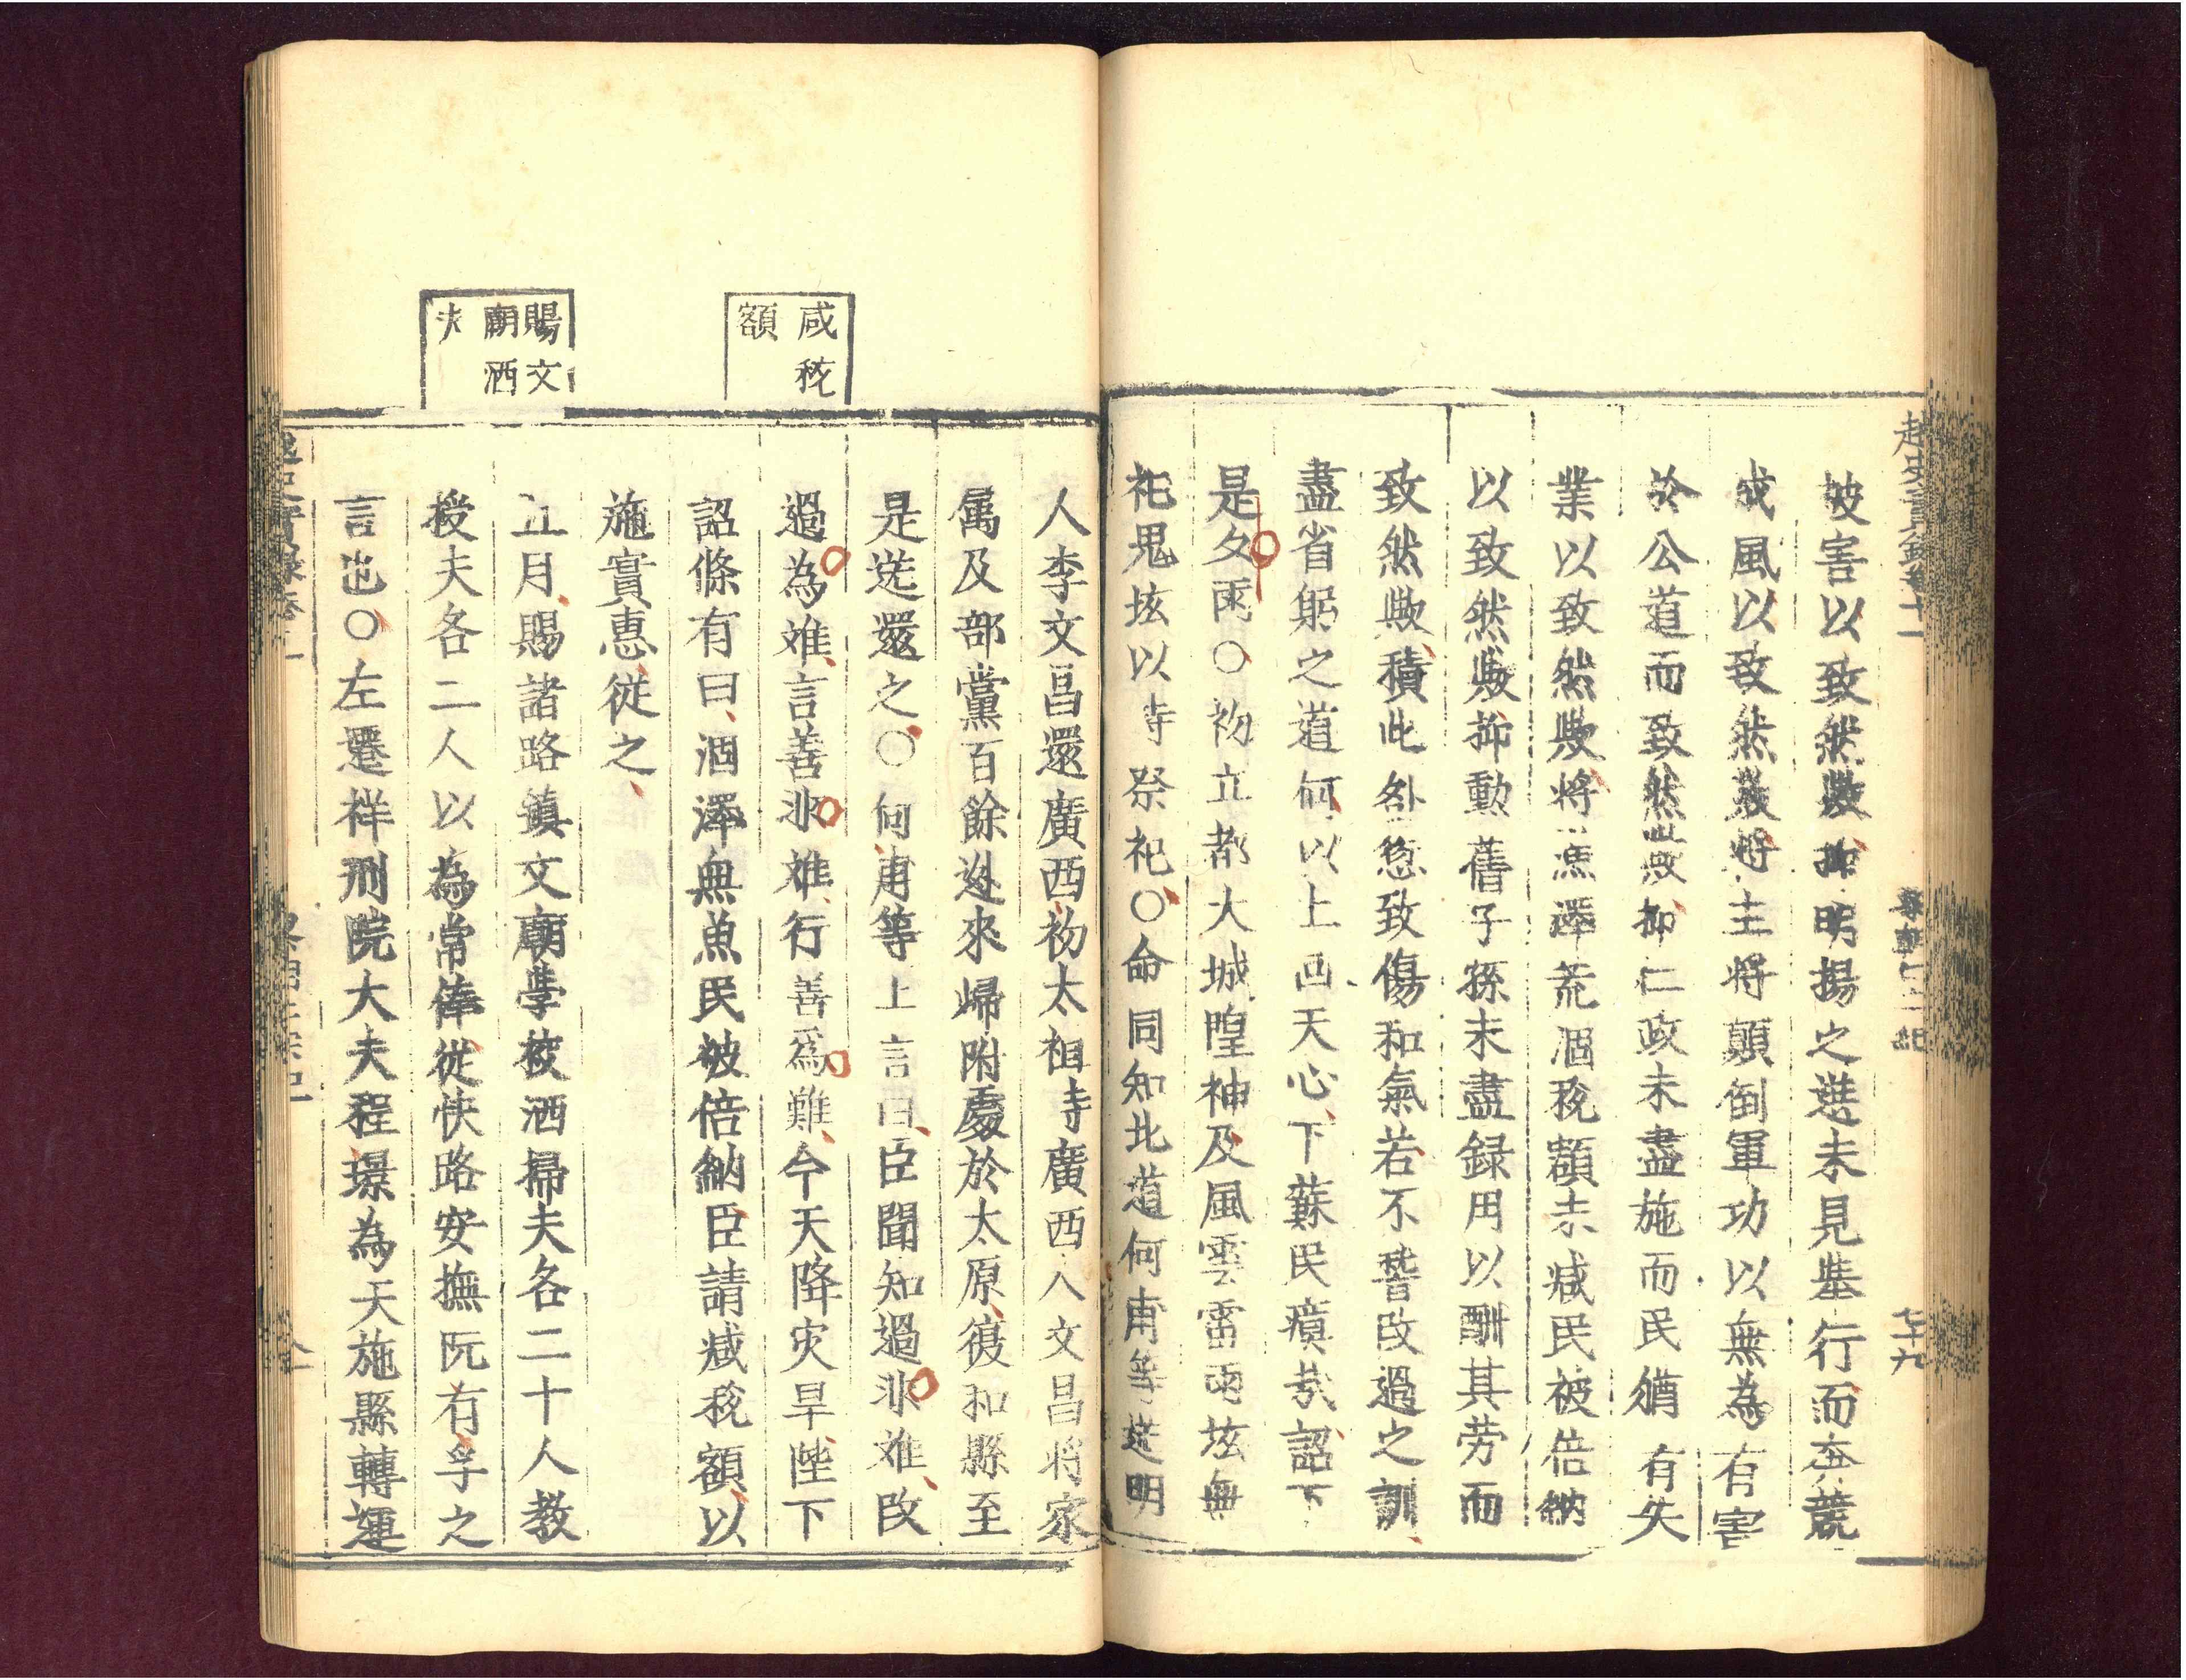 越史實錄卷十一
七十九
被害以致然歟抑明揚之選未見舉行而奔競
成風以致然歟將主將顛倒軍功以無為有害
於公道而致然歟抑仁政未盡施而民猶有失
業以致然歟將漁澤荒涸稅額未减民被倍納
以致然歟抑勳舊子孫未盡録用以酬其劳而
致然歟積此外愆致傷和氣若不發改過之訓
盡省躬之道何以上囬天心下蘇民瘼㢤詔下
是夕雨〇初立都大城隍神及風雲雷雨坛無
祀鬼坛以時祭祀〇命同知北道何甫等送明
人李文昌還廣西初太祖時廣西人文昌将家
属及部黨百餘逃來歸附處於太原復和縣至
是送還之〇何甫等上言曰臣聞知過非难改
過為难言善非难行善為難今天降灾旱陛下
詔條有曰涸澤無魚民被倍納臣請减稅額以
施實惠從之
减稅
額
五月賜諸路鎮文廟學校洒掃夫各二十人教
授夫各二人以為常俸從快路安撫阮有孚之
言也〇左遷祥刑院大夫程璟為天施縣轉運
賜文
廟洒
夫